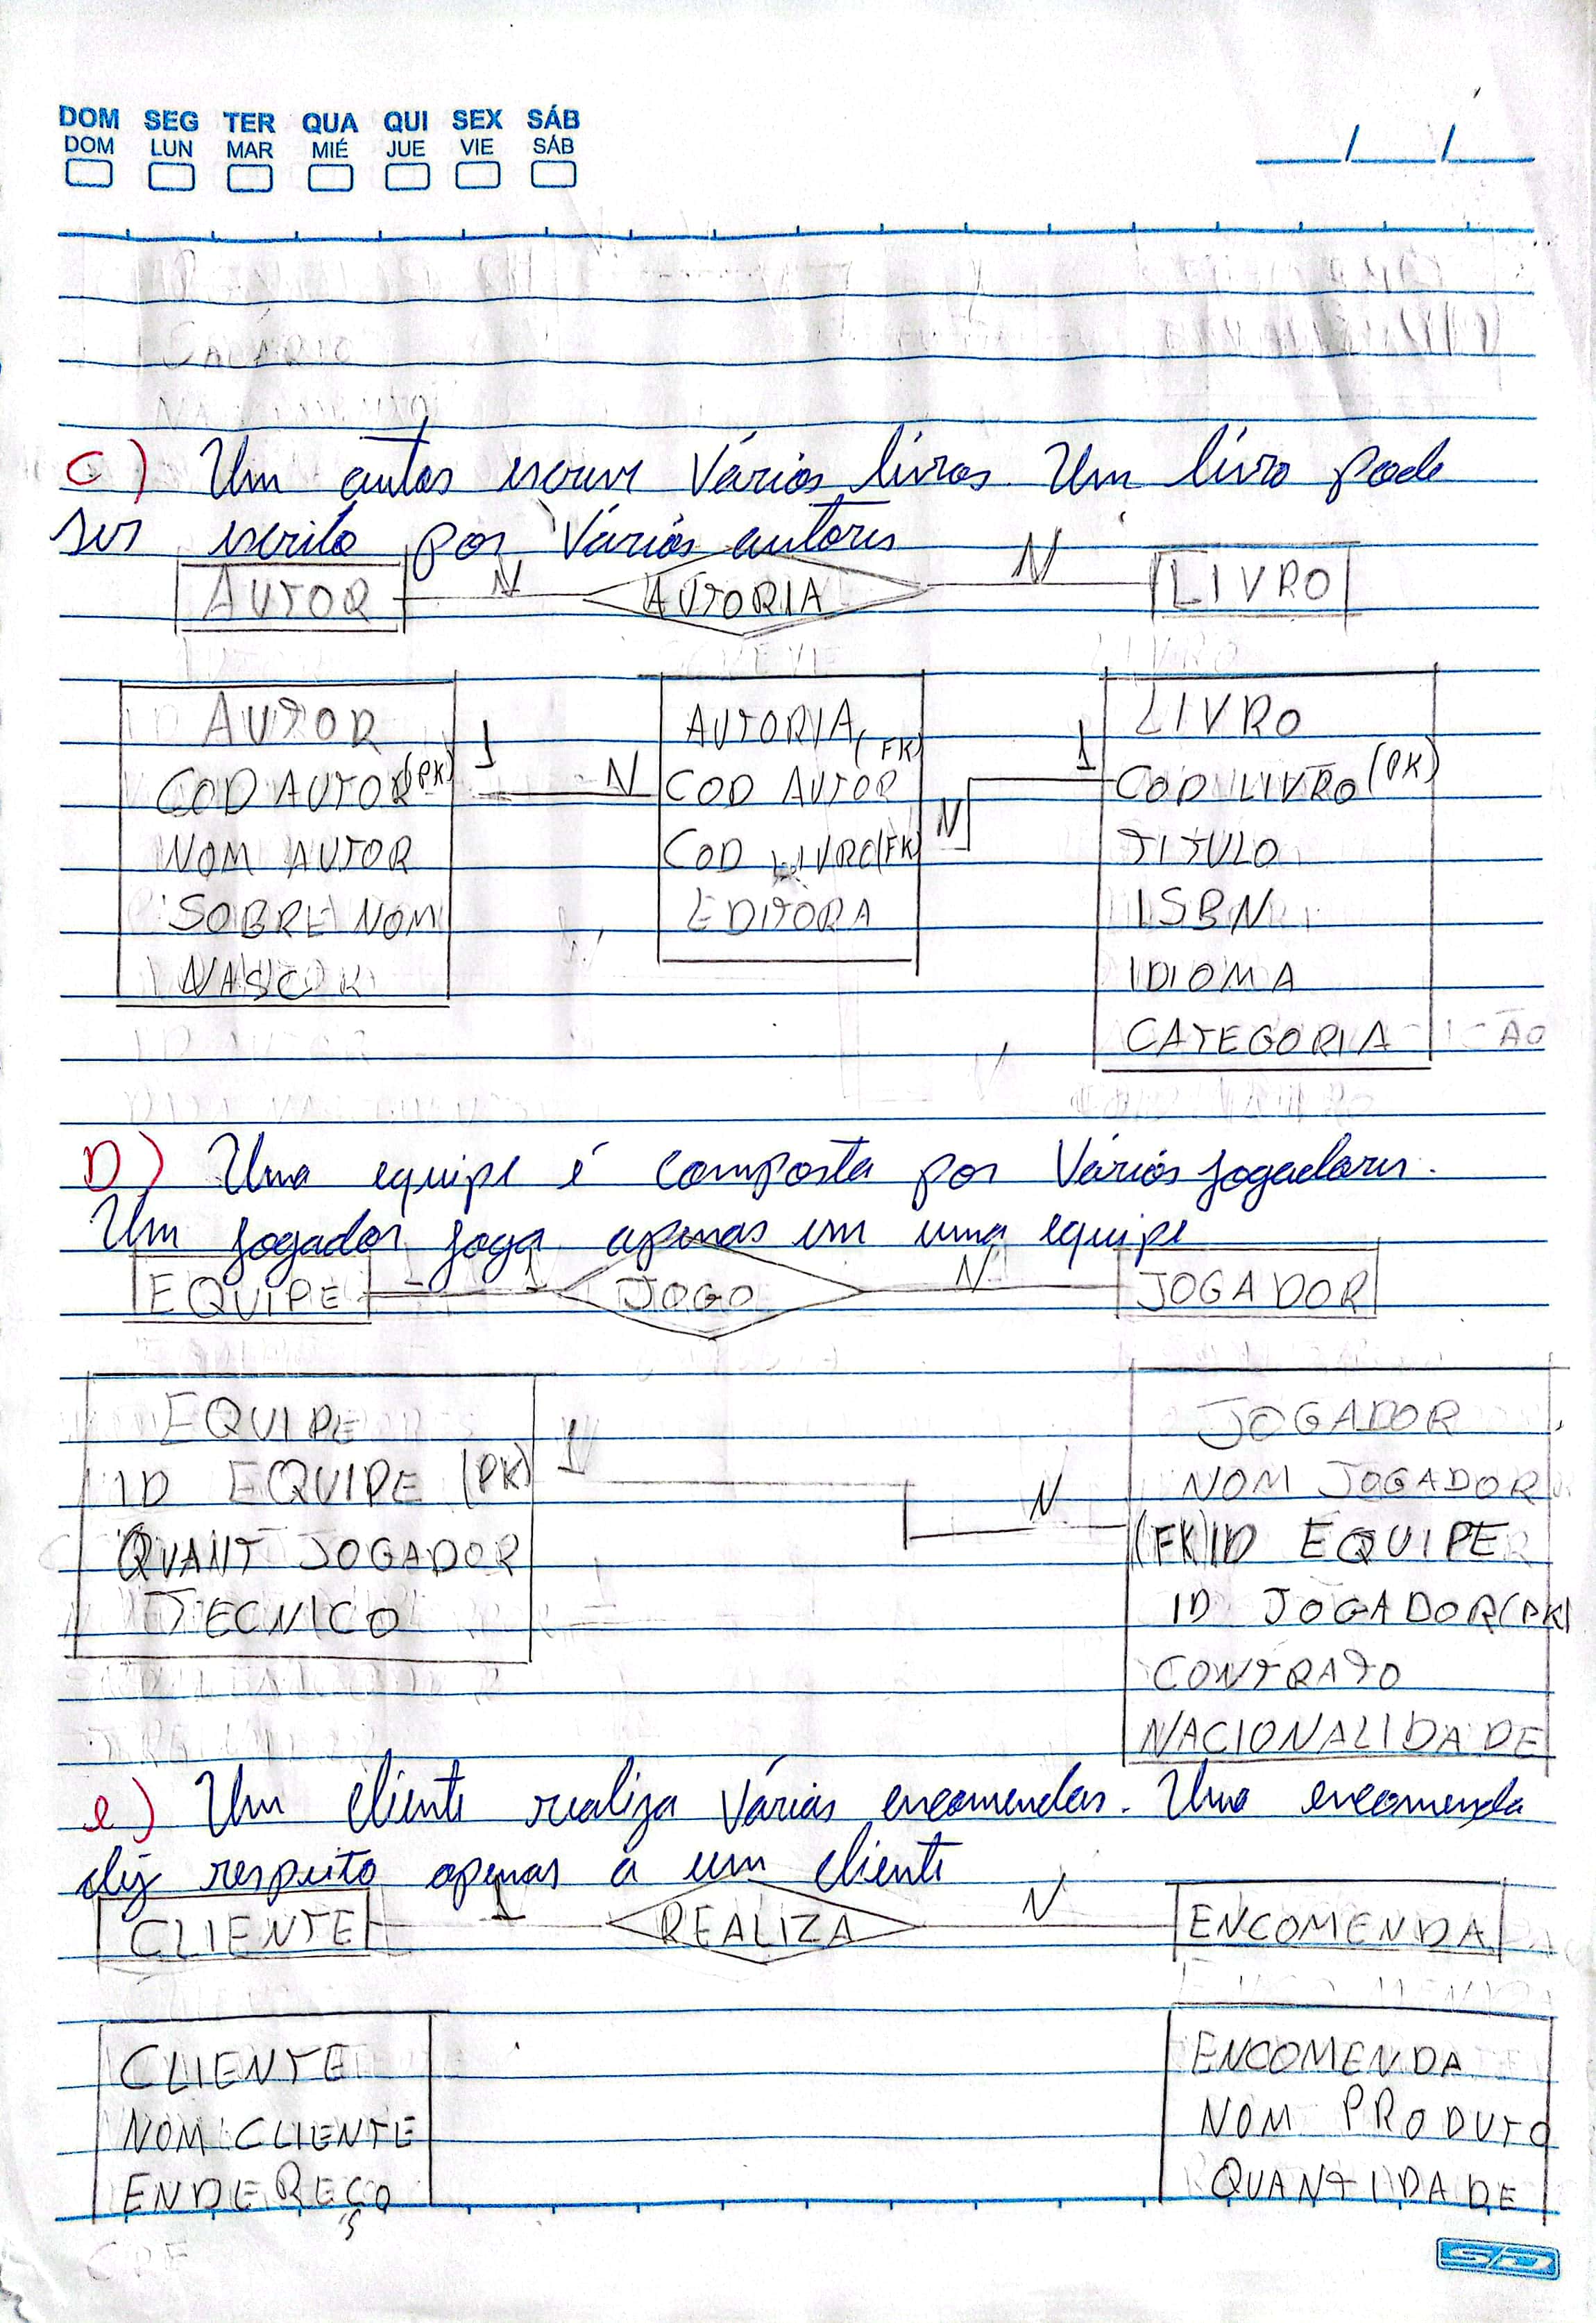 DOM SEG TER QUA QUI SEX SÁB
DOM LUN MAR MIÉ JUE VIE SÁB
/ /
SALÁRIO
C) Um autor escreve Vários livros. Um livro pode
ser escrito por Vários autores
AUTOR N AUTORIA N LIVRO
AUTOR
COD AUTOR (PK)
NOM AUTOR
SOBRE NOM
NASC
1 N
AUTORIA
COD AUTOR (FK)
COD LIVRO (FK)
EDITORA
N 1
LIVRO
COD LIVRO (PK)
TITULO
ISBN
IDIOMA
CATEGORIA
D) Uma equipe é composta por Vários jogadores.
Um jogador joga apenas em uma equipe
EQUIPE 1 1 JOGO N JOGADOR
EQUIPE
ID EQUIPE (PK)
QUANT JOGADOR
TECNICO
1 N
JOGADOR
NOM JOGADOR
(FK) ID EQUIPE
ID JOGADOR (PK)
CONTRATO
NACIONALIDADE
e) Um cliente realiza Várias encomendas. Uma encomenda
diz respeito apenas a um cliente
CLIENTE 1 REALIZA N ENCOMENDA
CLIENTE
NOM CLIENTE
ENDEREÇO
CPF
ENCOMENDA
NOM PRODUTO
QUANTIDADE
SD